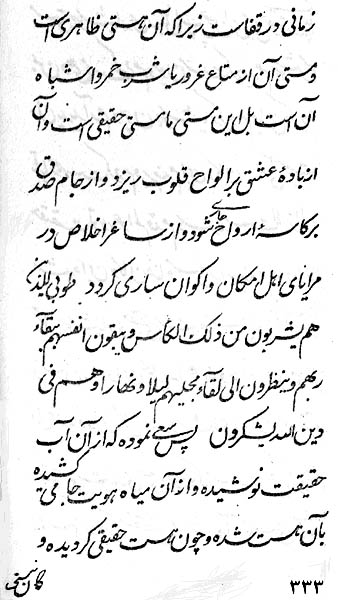 زمانی در قفاست زیرا که آن هستی ظاهری است
و مستی آن از متاع غرور یا شرب خمر و اشباه
آن است بل این مستی ما مستی حقیقی است و آن
از بادهٔ عشق بر الواح قلوب ریزد و از جام صدق
بر کاسهٔ ارواح جاری شود و از ساغر اخلاص در
مرایای اهل امکان و اکوان ساری گردد طوبی للذین
هم یشربون من ذلک الکاس و یبقون انفسهم ببقآء
ربهم و ینظرون الی لقآء محلیهم لیلا و نهارا و هم فی
دین الله یشکرون پس سعی نموده که از آن آب
حقیقت نوشیده و از آن میاه هویت جامی کشیده
بآن هست شده و چون هست حقیقی گردیده و
۳۳۳